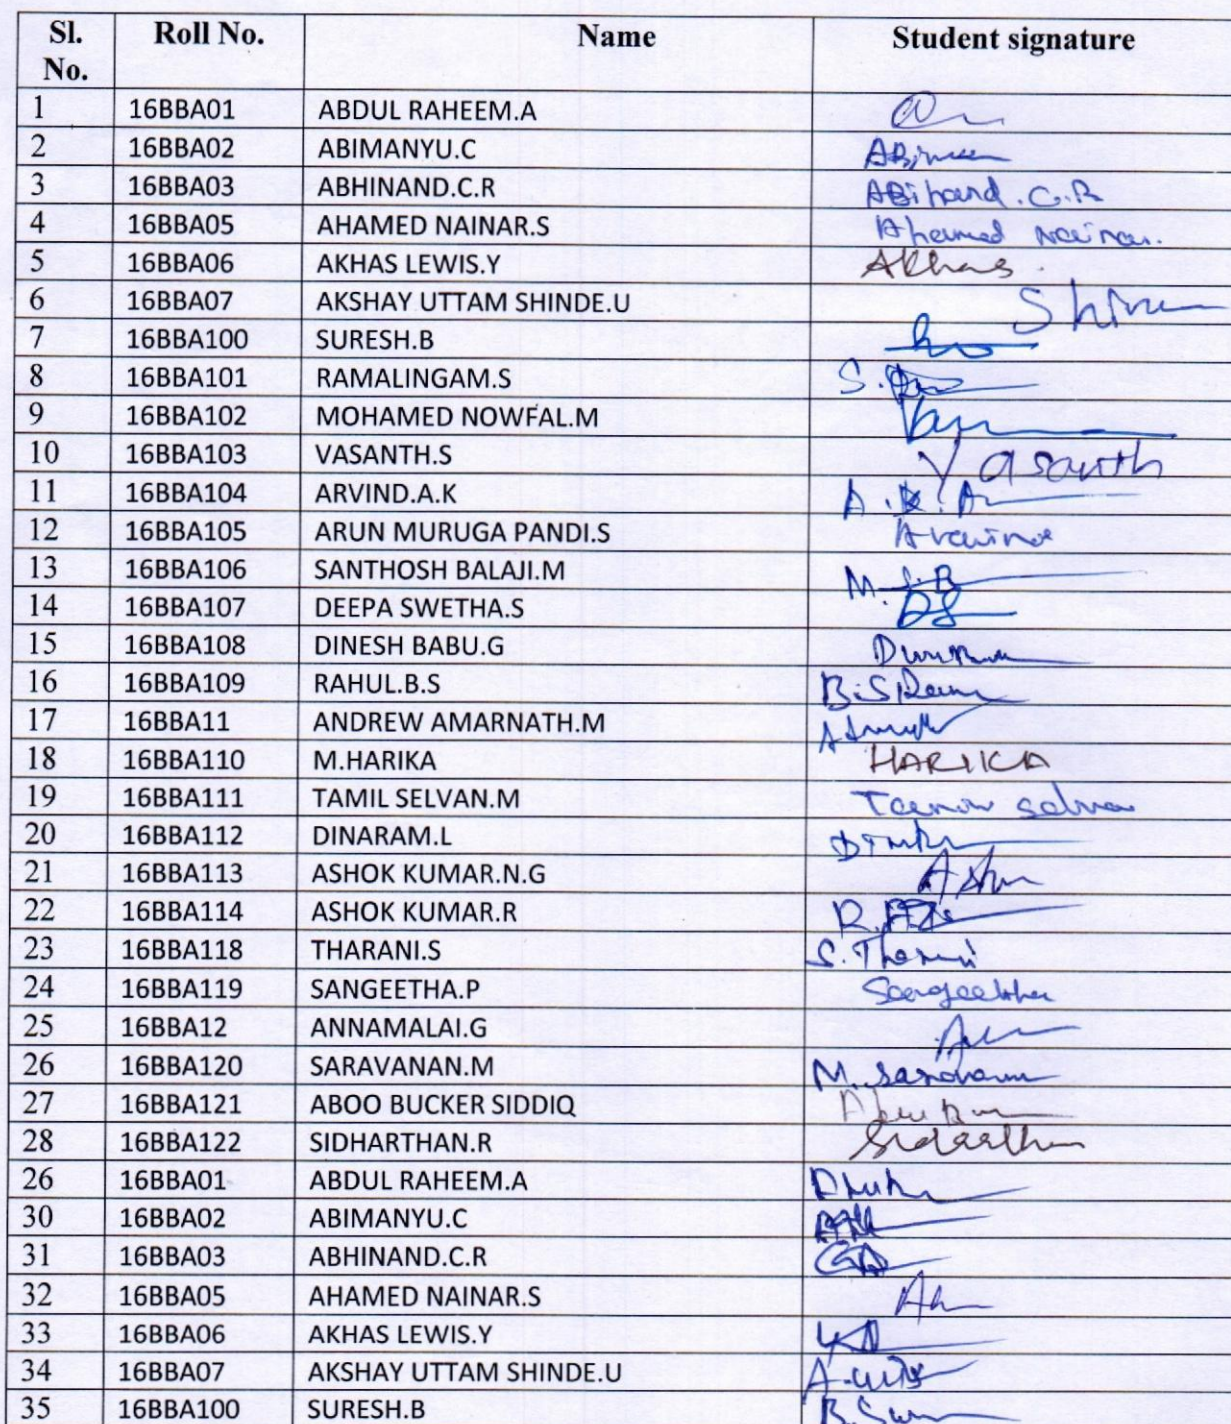 Sl. No. Roll No. Name Student signature
1 16BBA01 ABDUL RAHEEM.A
2 16BBA02 ABIMANYU.C
3 16BBA03 ABHINAND.C.R ABihand.C.R
4 16BBA05 AHAMED NAINAR.S Ahamed Nainar.
5 16BBA06 AKHAS LEWIS.Y Akhas.
6 16BBA07 AKSHAY UTTAM SHINDE.U
7 16BBA100 SURESH.B
8 16BBA101 RAMALINGAM.S
9 16BBA102 MOHAMED NOWFAL.M
10 16BBA103 VASANTH.S Vasanth
11 16BBA104 ARVIND.A.K
12 16BBA105 ARUN MURUGA PANDI.S
13 16BBA106 SANTHOSH BALAJI.M
14 16BBA107 DEEPA SWETHA.S DS
15 16BBA108 DINESH BABU.G
16 16BBA109 RAHUL.B.S
17 16BBA11 ANDREW AMARNATH.M
18 16BBA110 M.HARIKA HARIKA
19 16BBA111 TAMIL SELVAN.M
20 16BBA112 DINARAM.L
21 16BBA113 ASHOK KUMAR.N.G
22 16BBA114 ASHOK KUMAR.R
23 16BBA118 THARANI.S
24 16BBA119 SANGEETHA.P Sangeetha
25 16BBA12 ANNAMALAI.G
26 16BBA120 SARAVANAN.M
27 16BBA121 ABOO BUCKER SIDDIQ
28 16BBA122 SIDHARTHAN.R
26 16BBA01 ABDUL RAHEEM.A
30 16BBA02 ABIMANYU.C
31 16BBA03 ABHINAND.C.R
32 16BBA05 AHAMED NAINAR.S
33 16BBA06 AKHAS LEWIS.Y
34 16BBA07 AKSHAY UTTAM SHINDE.U
35 16BBA100 SURESH.B